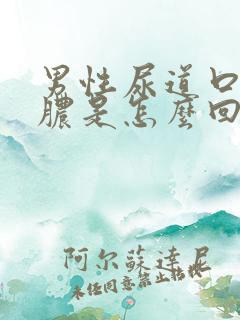 男性尿道口
膿是怎麼回
阿尔蘇達尼
未经同意禁止转载